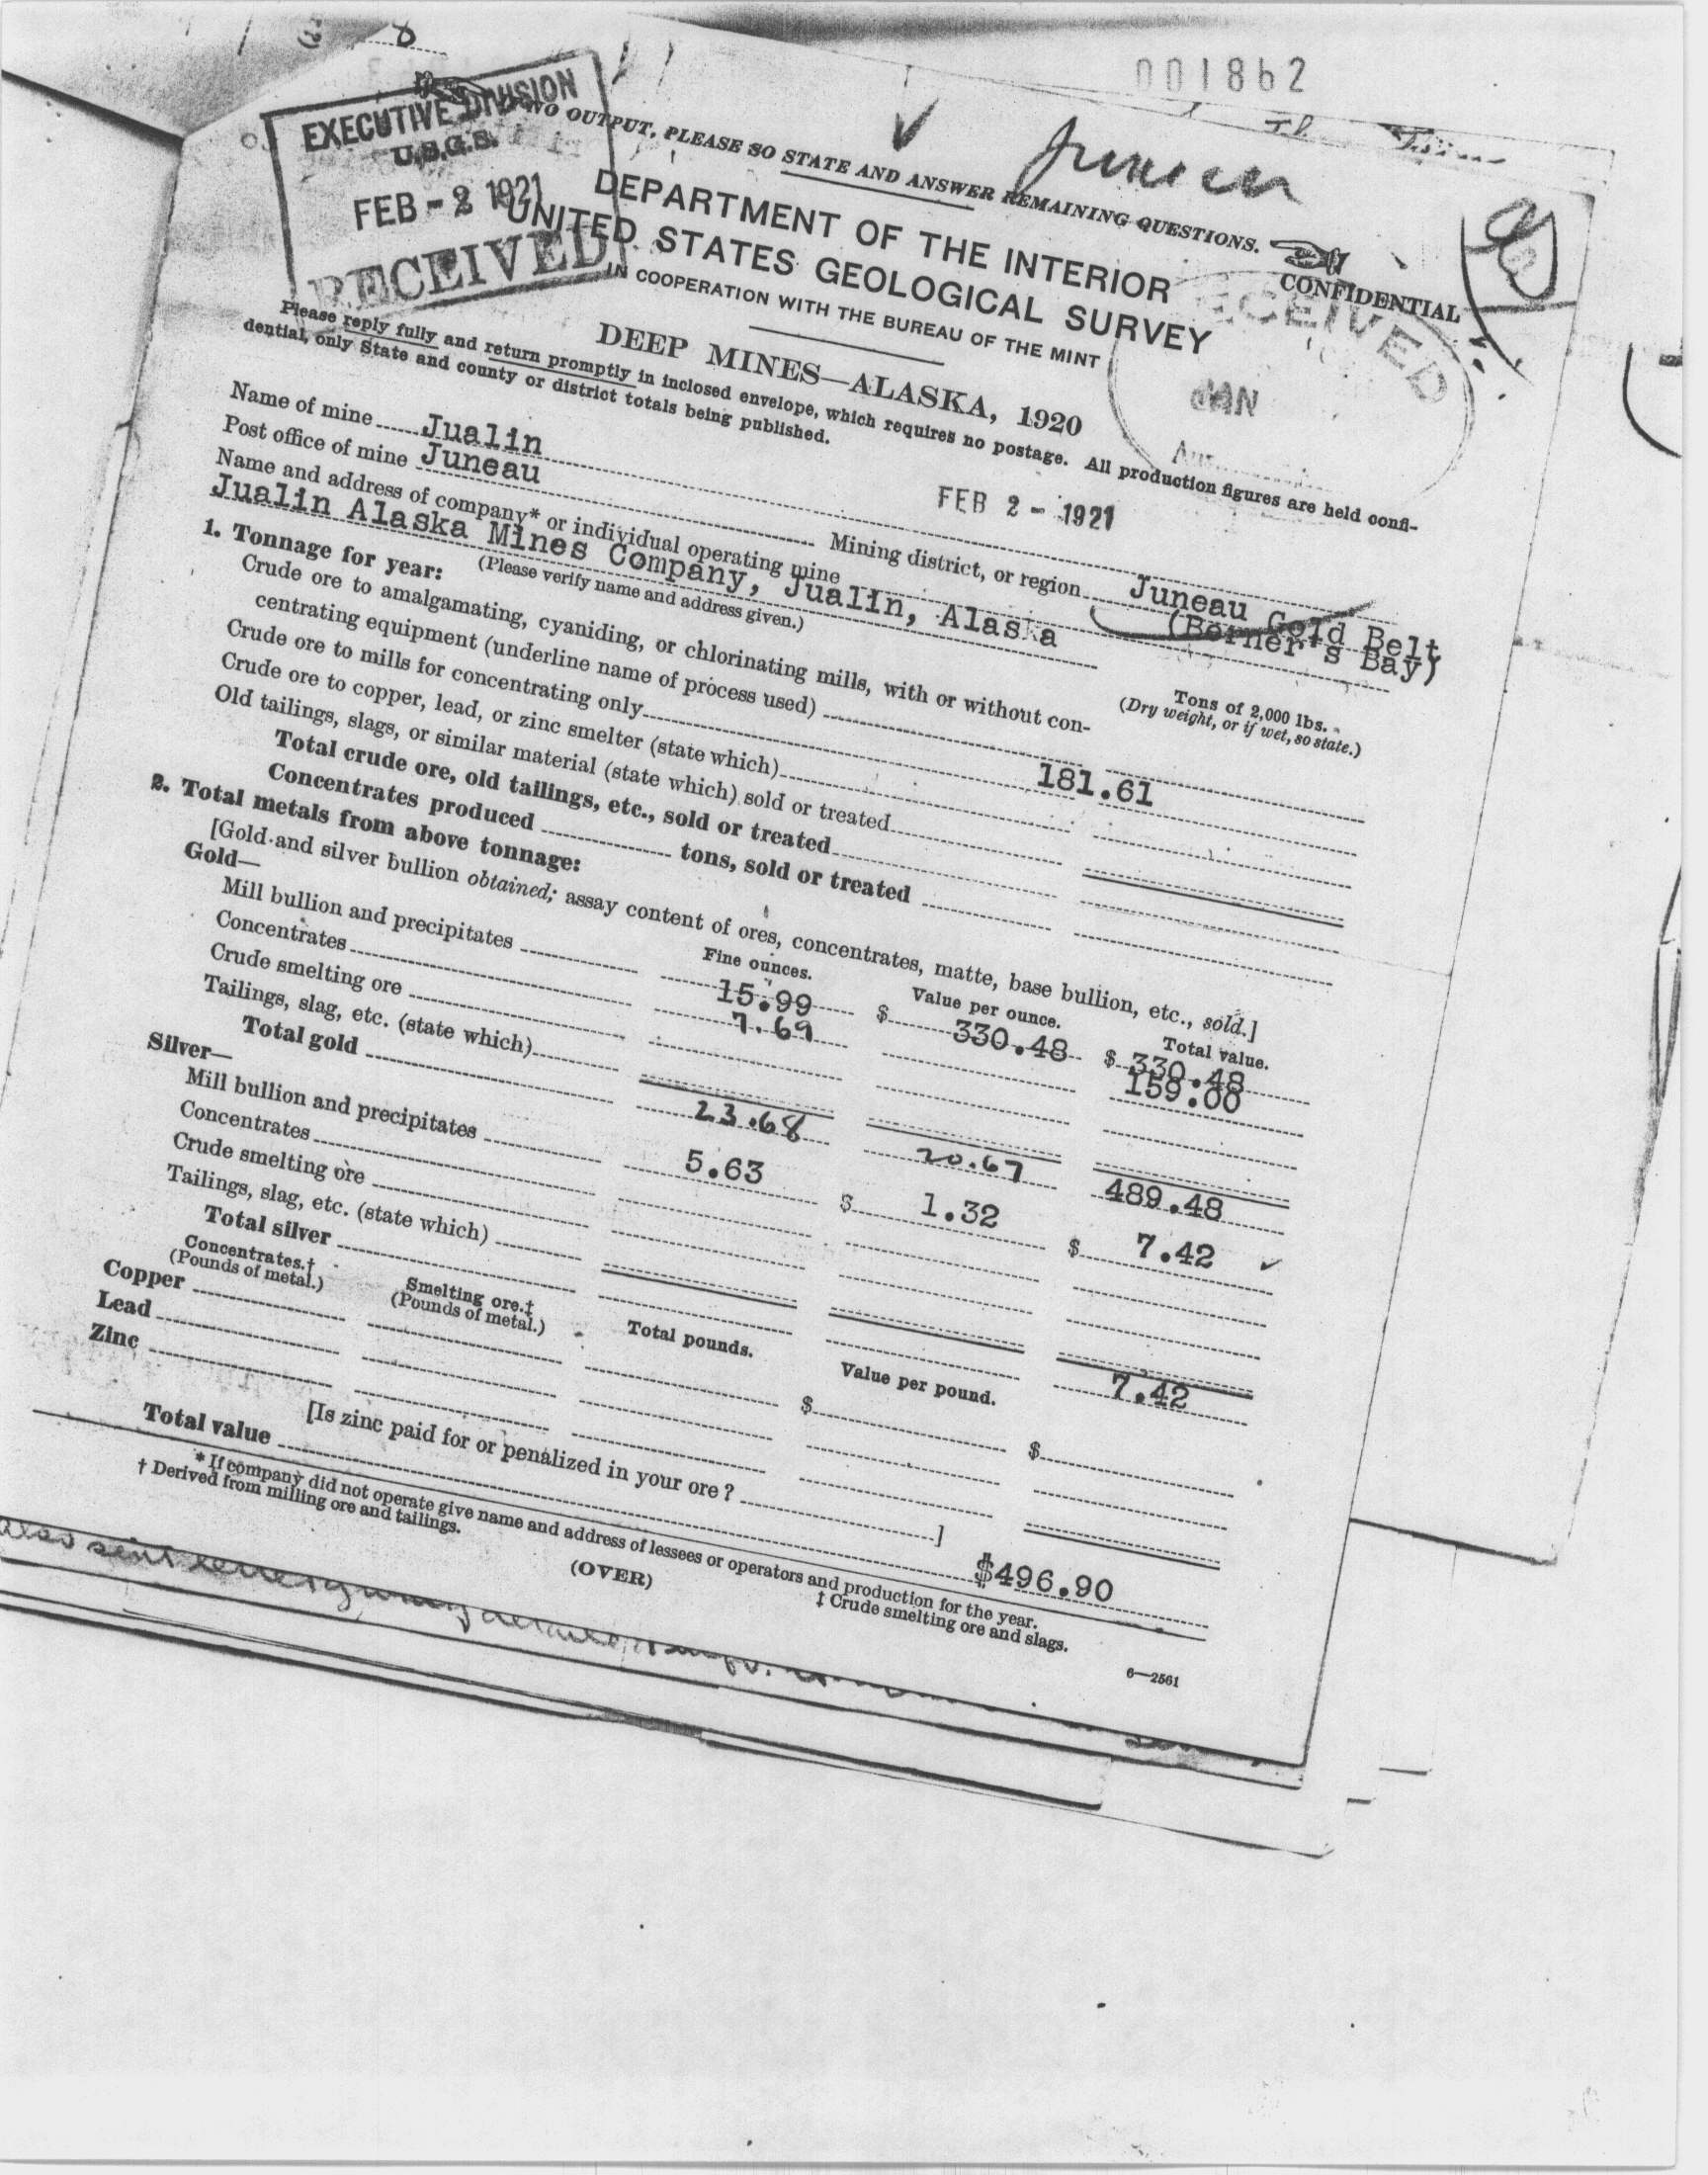 001862
EXECUTIVE DIVISION
U.S.G.S.
FEB - 2 1921
RECEIVED
NO OUTPUT, PLEASE SO STATE AND ANSWER REMAINING QUESTIONS.
Juneau
DEPARTMENT OF THE INTERIOR
UNITED STATES GEOLOGICAL SURVEY
IN COOPERATION WITH THE BUREAU OF THE MINT
CONFIDENTIAL
RECEIVED
JAN
DEEP MINES—ALASKA, 1920
Please reply fully and return promptly in inclosed envelope, which requires no postage. All production figures are held confi-
dential, only State and county or district totals being published.
FEB 2 - 1921
Name of mine Jualin
Post office of mine Juneau Mining district, or region Juneau Gold Belt
(Berner's Bay)
Name and address of company* or individual operating mine
Jualin Alaska Mines Company, Jualin, Alaska
(Please verify name and address given.)
1. Tonnage for year:
Tons of 2,000 lbs.
(Dry weight, or if wet, so state.)
Crude ore to amalgamating, cyaniding, or chlorinating mills, with or without con-
centrating equipment (underline name of process used) 181.61
Crude ore to mills for concentrating only
Crude ore to copper, lead, or zinc smelter (state which)
Old tailings, slags, or similar material (state which) sold or treated
Total crude ore, old tailings, etc., sold or treated
Concentrates produced tons, sold or treated
2. Total metals from above tonnage:
[Gold and silver bullion obtained; assay content of ores, concentrates, matte, base bullion, etc., sold.]
Gold— Fine ounces. Value per ounce. Total value.
Mill bullion and precipitates 15.99 $ 330.48 $ 330.48
Concentrates 7.69 159.00
Crude smelting ore
Tailings, slag, etc. (state which)
Total gold 23.68 20.67 489.48
Silver—
Mill bullion and precipitates 5.63 $ 1.32 $ 7.42
Concentrates
Crude smelting ore
Tailings, slag, etc. (state which)
Total silver 7.42
Concentrates.† (Pounds of metal.) Smelting ore.‡ (Pounds of metal.) Total pounds. Value per pound.
Copper $ $
Lead
Zinc
[Is zinc paid for or penalized in your ore? ]
Total value $496.90
* If company did not operate give name and address of lessees or operators and production for the year.
† Derived from milling ore and tailings. ‡ Crude smelting ore and slags.
(OVER)
6—2561